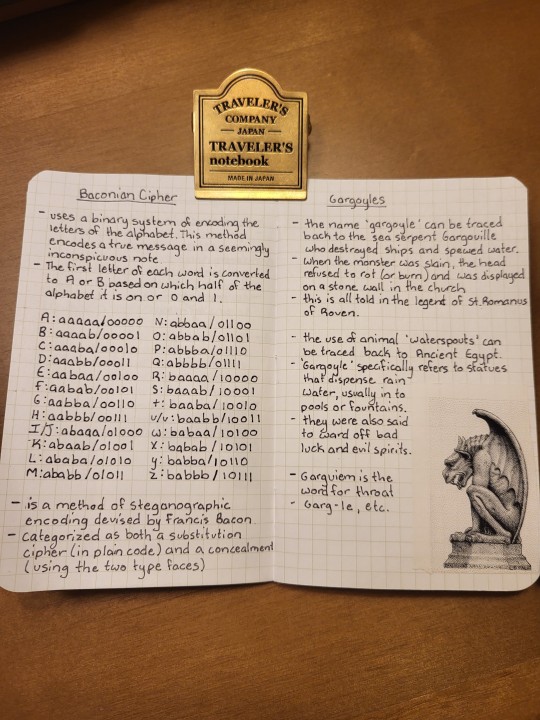 TRAVELER'S
COMPANY
JAPAN
TRAVELER'S
notebook
MADE IN JAPAN
Baconian Cipher
- uses a binary system of encoding the
letters of the alphabet. This method
encodes a true message in a seemingly
inconspicuous note
- The first letter of each word is converted
to A or B based on which half of the
alphabet it is on or 0 and 1.
A: aaaaa/00000 N: abbaa/01100
B: aaaab/00001 O: abbab/01101
C: aaaba/00010 P: abbba/01110
D: aaabb/00011 Q: abbbb/01111
E: aabaa/00100 R: baaaa/10000
F: aabab/00101 S: baaab/10001
G: aabba/00110 t: baaba/10010
H: aabbb/00111 u/v: baabb/10011
I/J: abaaa/01000 w: babaa/10100
K: abaab/01001 X: babab/10101
L: ababa/01010 y: babba/10110
M: ababb/01011 Z: babbb/10111
- is a method of steganographic
encoding devised by Francis Bacon
- categorized as both a substitution
cipher (in plain code) and a concealment
(using the two type faces)
Gargoyles
- the name 'gargoyle' can be traced
back to the sea serpent Gargouille
who destroyed ships and spewed water.
- When the monster was slain, the head
refused to rot (or burn) and was displayed
on a stone wall in the church
- this is all told in the legend of St. Romanus
of Roven.
- the use of animal 'waterspouts' can
be traced back to Ancient Egypt.
- 'Gargoyle' specifically refers to statues
that dispense rain
water, usually in to
pools or fountains.
- they were also said
to ward off bad
luck and evil spirits.
- Garguiem is the
word for throat
- Garg-le, etc.